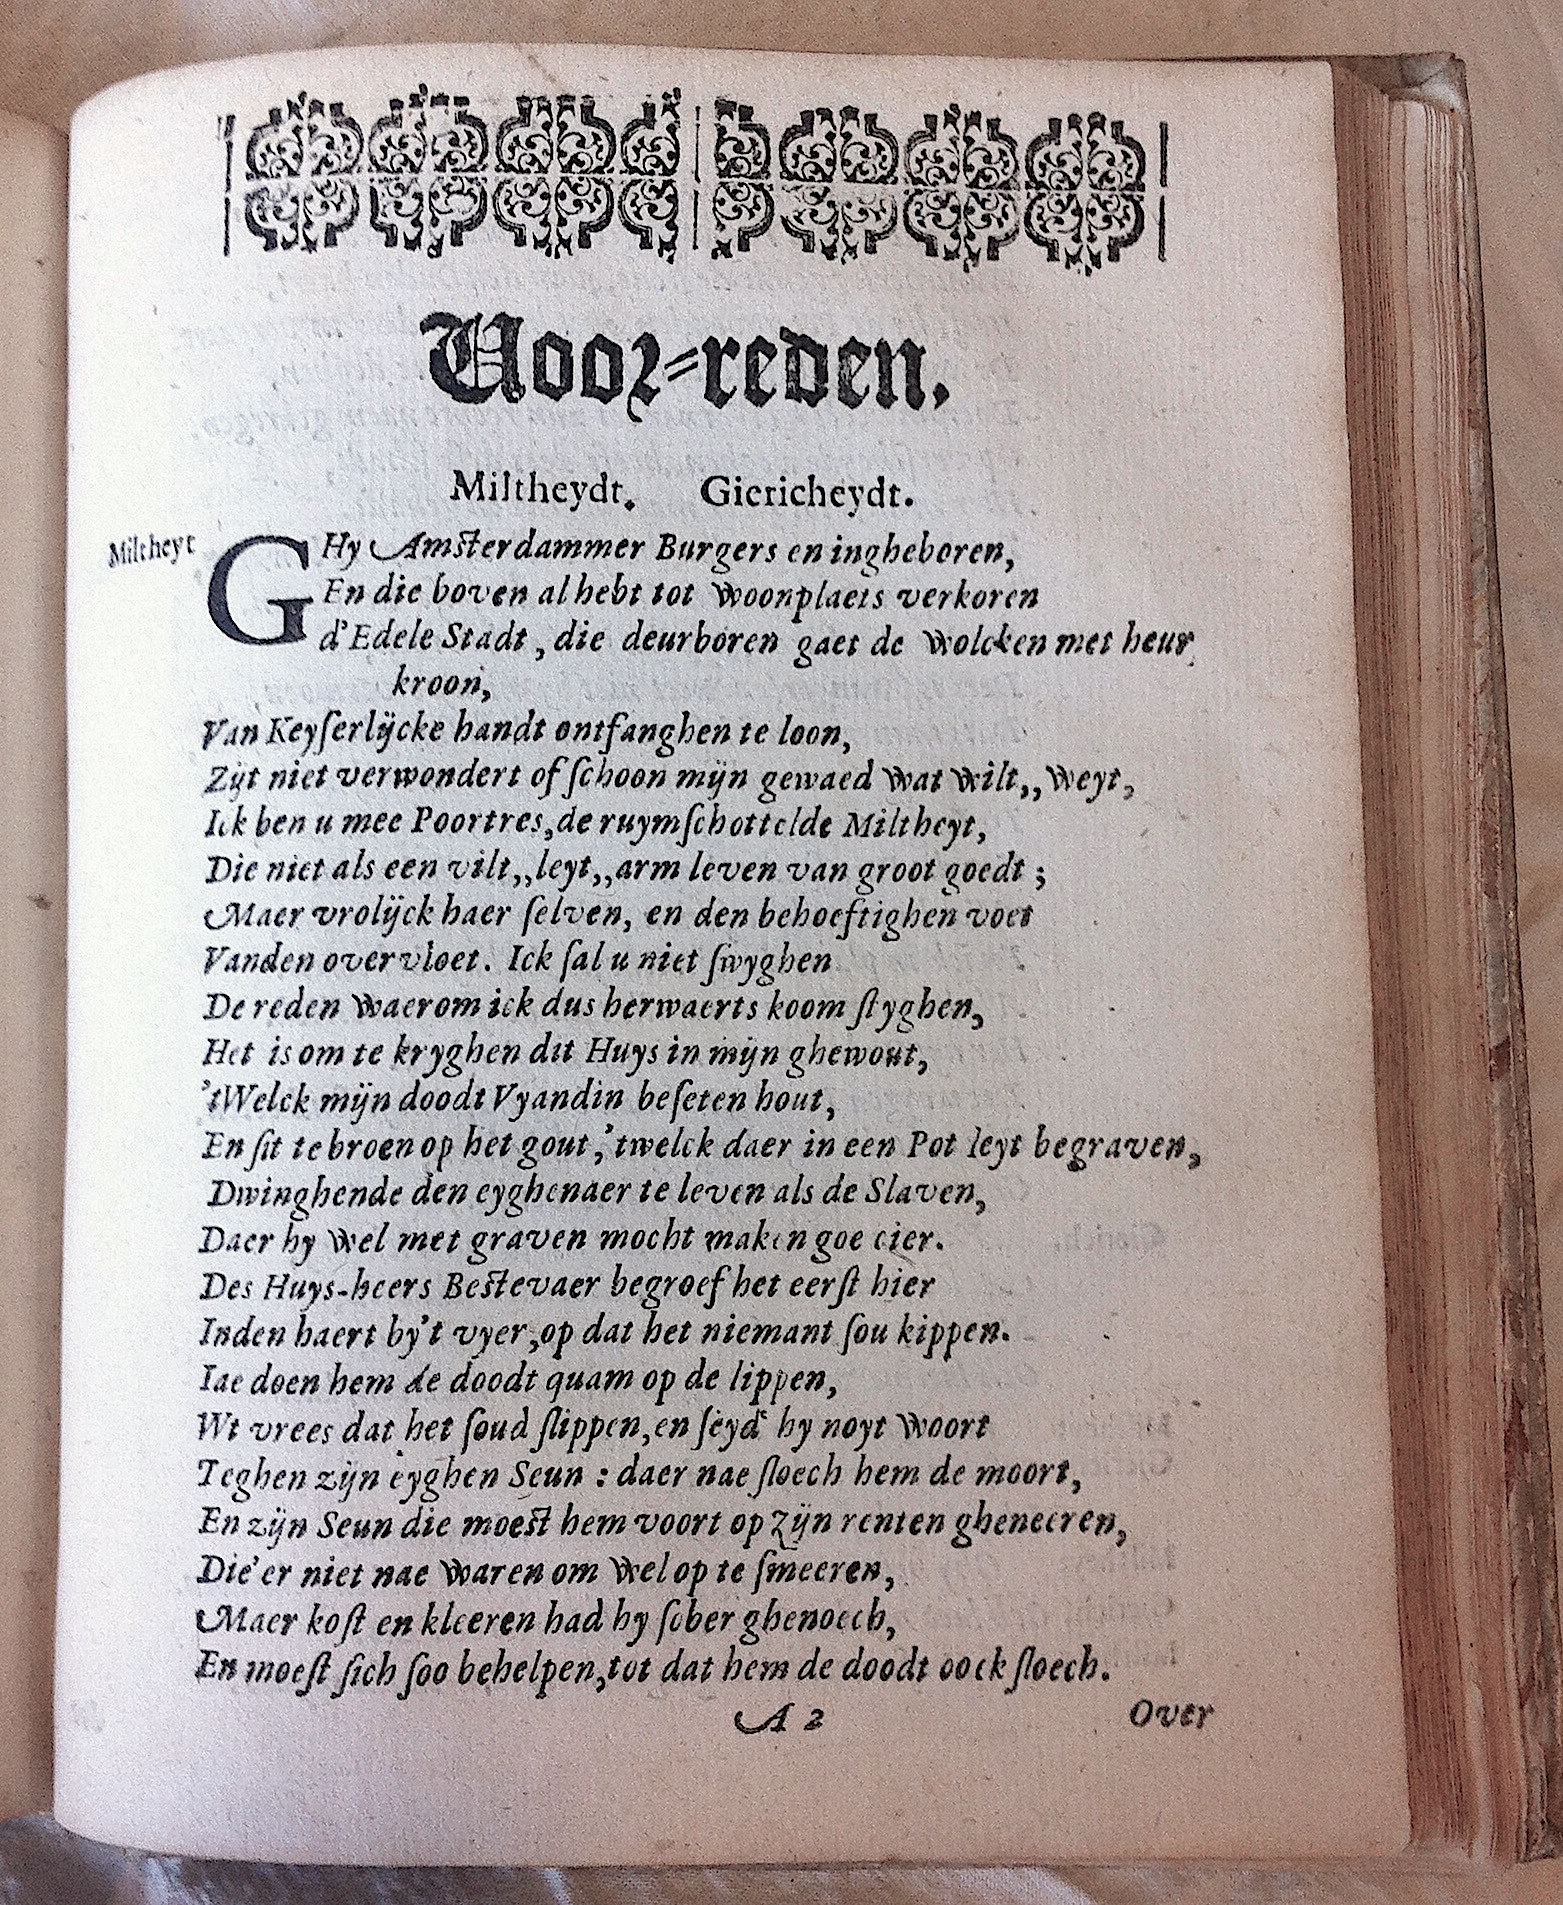 Voor-reden.
Miltheydt. Giericheydt.
Miltheyt
GHy Amsterdammer Burgers en ingheboren,
En die boven al hebt tot woonplaets verkoren
d'Edele Stadt, die deurboren gaet de wolcken met heur
kroon,
Van Keyſerlijcke handt ontfanghen te loon,
Zijt niet verwondert of ſchoon mijn gewaed wat wilt,, weyt,
Ick ben u mee Poortres, de ruymſchottelde Miltheyt,
Die niet als een vilt,, leyt,, arm leven van groot goedt;
Maer vrolijck haer ſelven, en den behoeftighen voet
Vanden overvloet. Ick ſal u niet ſwyghen
De reden waerom ick dus herwaerts koom ſtyghen,
Het is om te kryghen dit Huys in mijn ghewout,
'tWelck mijn doodt Vyandin beſeten hout,
En ſit te broen op het gout, 'twelck daer in een Pot leyt begraven,
Dwinghende den eyghenaer te leven als de Slaven,
Daer hy wel met graven mocht maken goe cier.
Des Huys-heers Bestevaer begroef het eerſt hier
Inden haert by't vyer, op dat het niemant ſou kippen.
Iae doen hem de doodt quam op de lippen,
Wt vrees dat het ſoud ſlippen, en ſeyde hy noyt woort
Teghen zijn eyghen Seun : daer nae ſloech hem de moort,
En zijn Seun die moest hem voort op zijn renten gheneeren,
Die'er niet nae waren om wel op te ſmeeren,
Maer koſt en kleeren had hy ſober ghenoech,
En moeſt ſich ſoo behelpen, tot dat hem de doodt oock ſloech.
A 2
Over